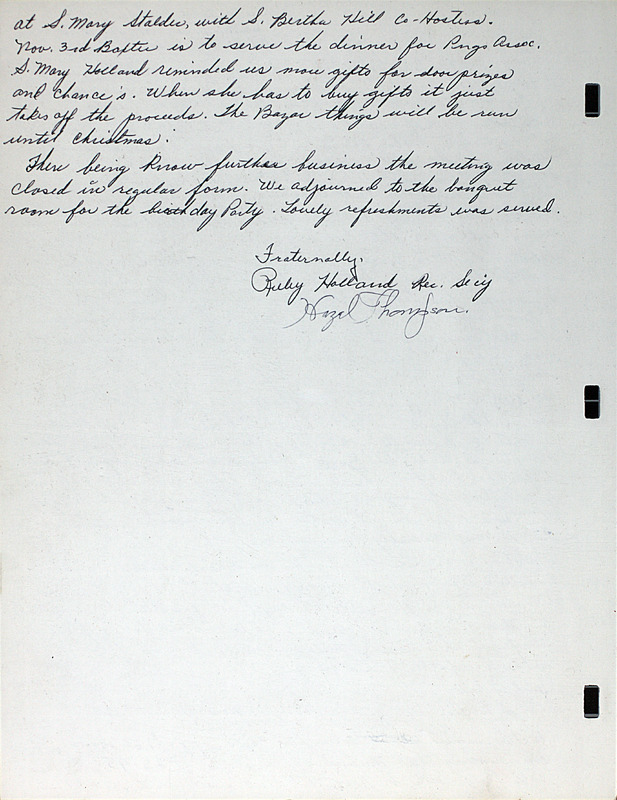 at S. Mary Stalder, with S. Bertha Hill Co-Hostess.
Nov. 3rd is to serve the dinner for Assoc.
S. Mary Holland reminded us more gifts for door prizes
and chance's. When she has to buy gifts it just
takes off the proceeds. The Bazar things will be run
until Christmas.
There being know further business the meeting was
closed in regular form. We adjourned to the banqut
room for the birthday Party. Lovely refreshments was served.
Fraternally,
Ruby Holland Rec. Sec'y
Hazel Thompson.